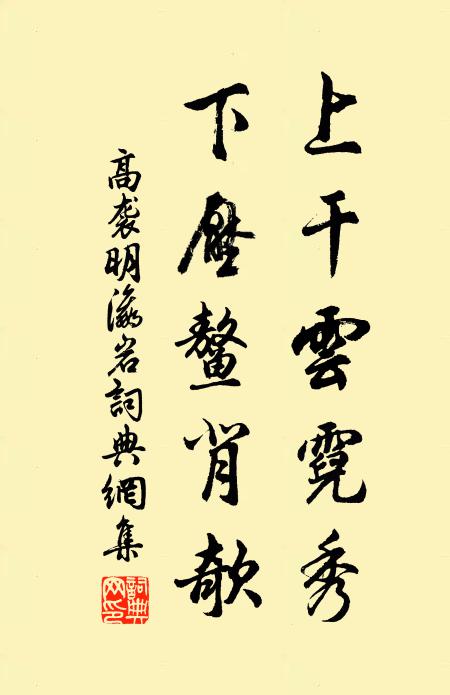 上干雲霓秀
下壓鰲背欹
高袭明瀛岩詞典網集
詞典网印